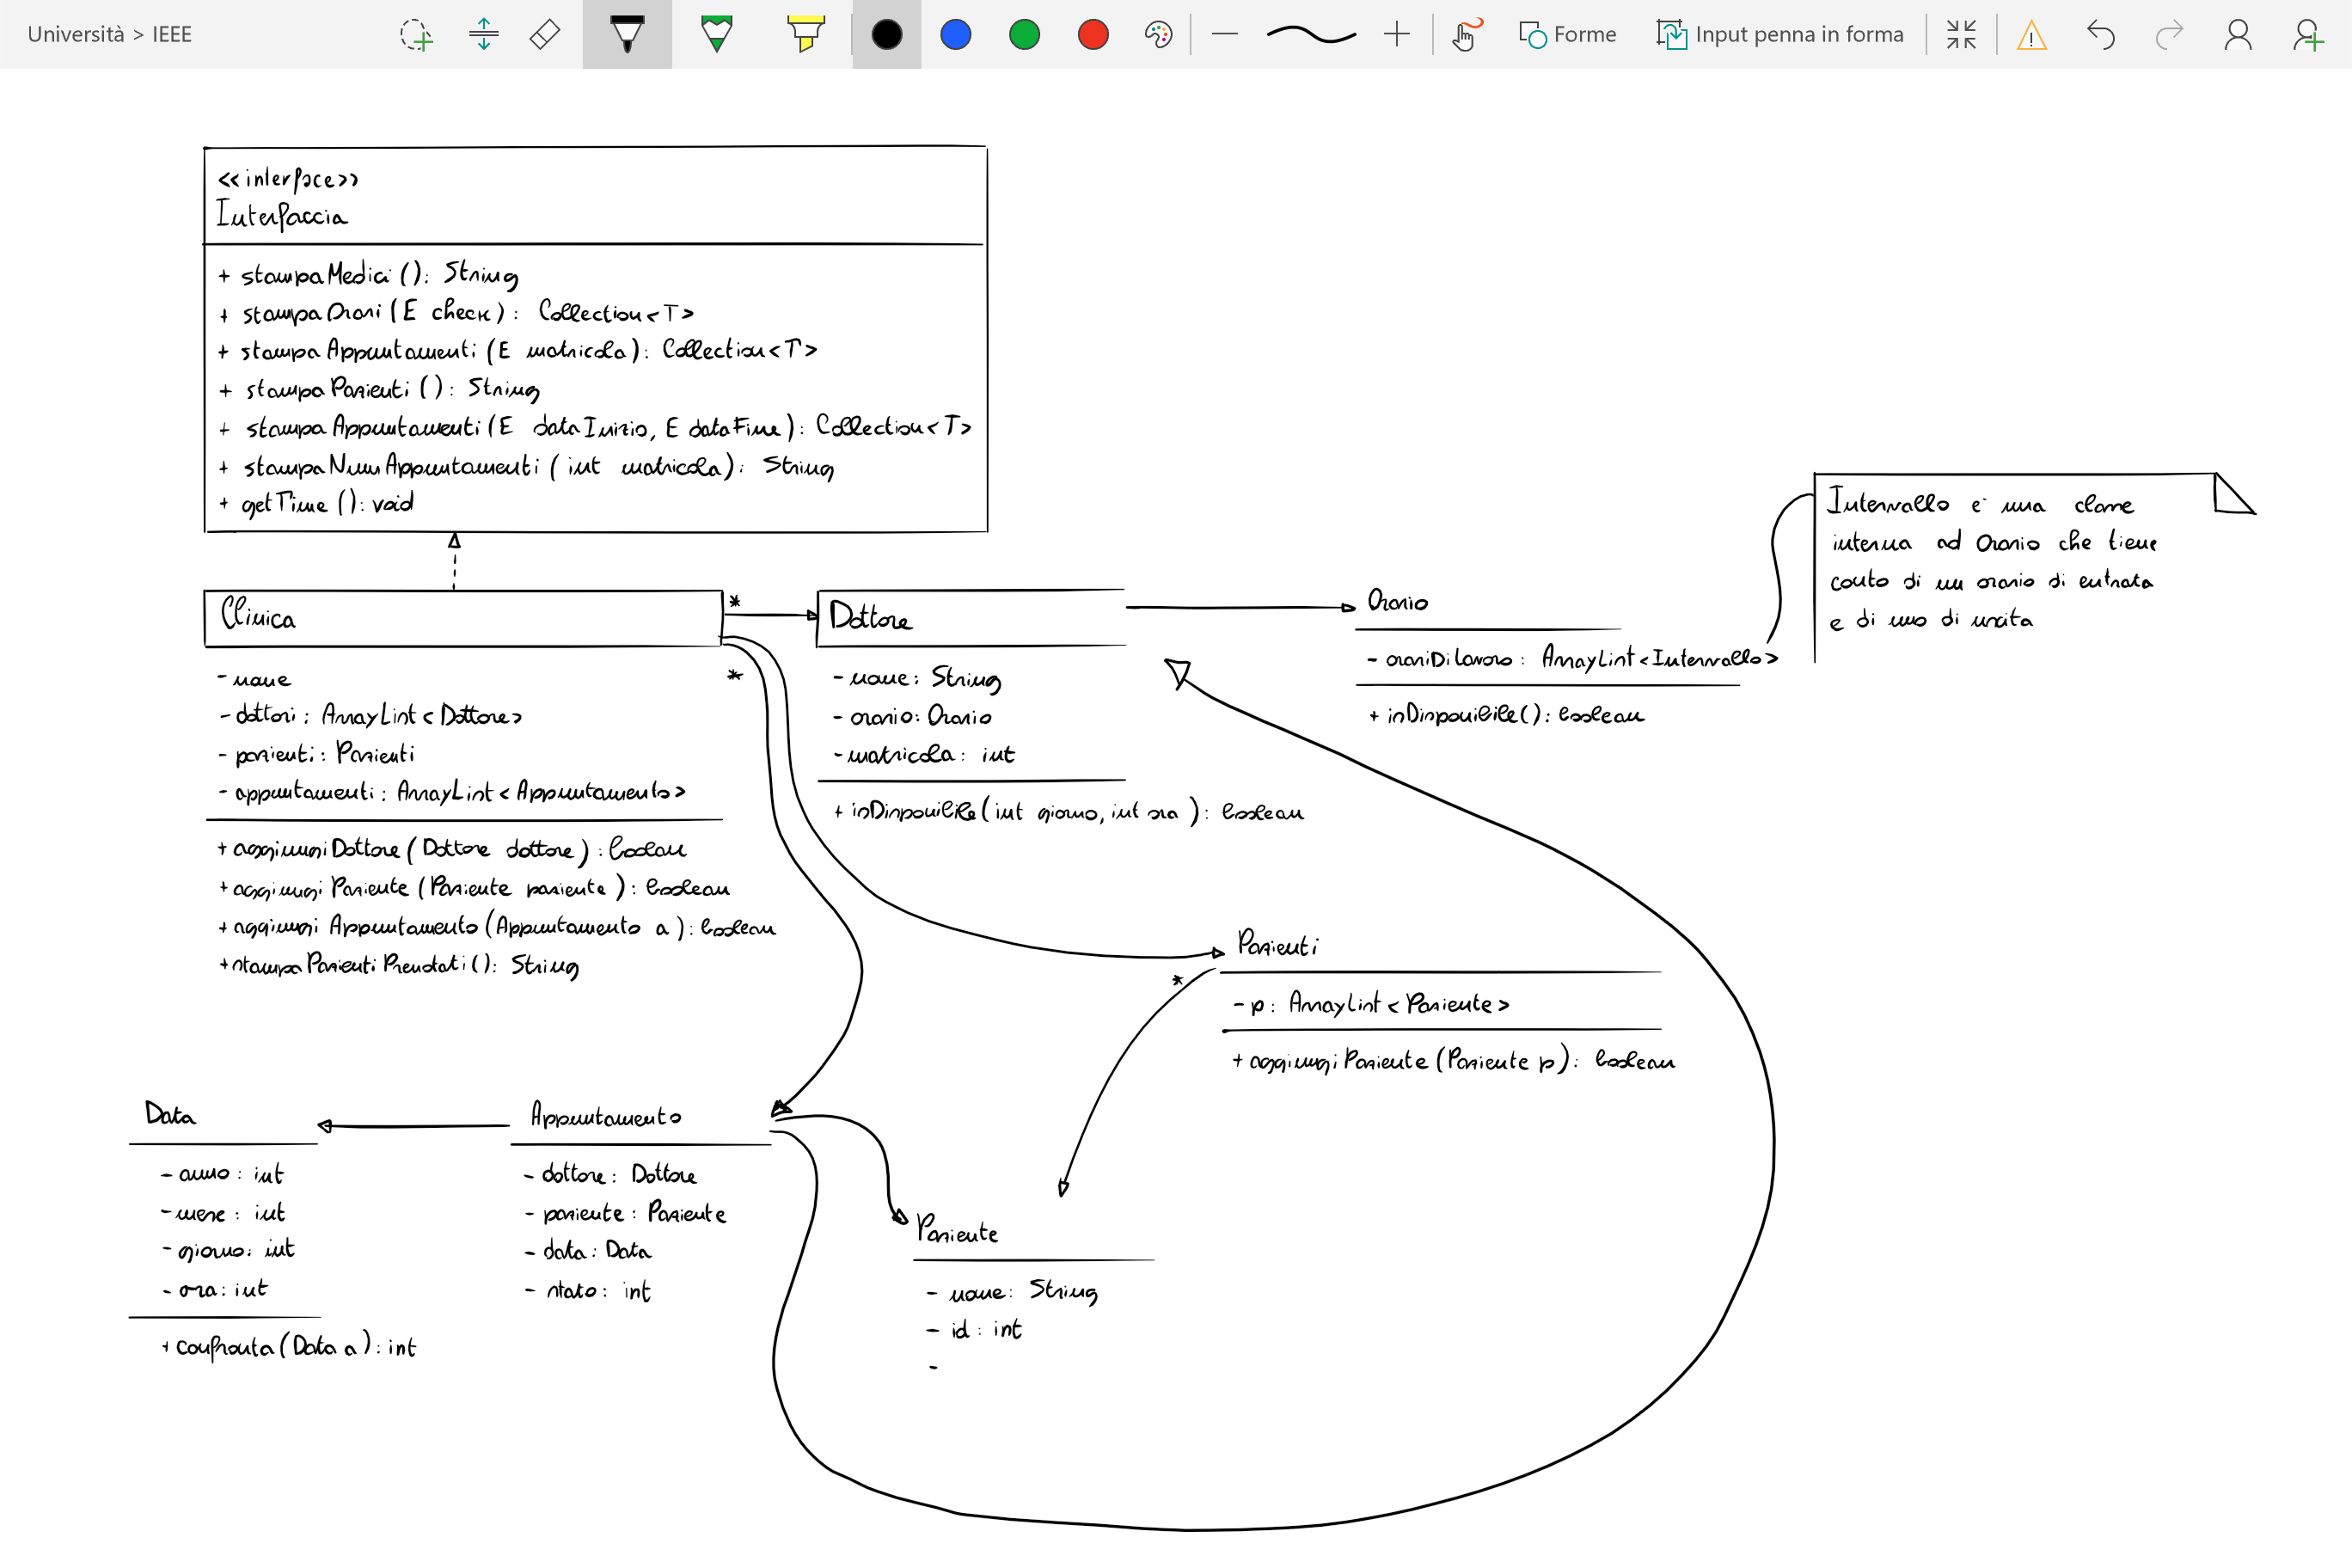 Università > IEEE
Forme
Input penna in forma
<<interface>>
Interfaccia
+ stampaMedici(): String
+ stampaOrari(E check): Collection<T>
+ stampaAppuntamenti(E matricola): Collection<T>
+ stampaPazienti(): String
+ stampaAppuntamenti(E dataInizio, E dataFine): Collection<T>
+ stampaNumAppuntamenti(int matricola): String
+ getTime(): void
Clinica
- nome
- dottori: ArrayList<Dottore>
- pazienti: Pazienti
- appuntamenti: ArrayList<Appuntamento>
+ aggiungiDottore(Dottore dottore): boolean
+ aggiungiPaziente(Paziente paziente): boolean
+ aggiungiAppuntamento(Appuntamento a): boolean
+ stampaPazientiPrenotati(): String
*
*
Dottore
- nome: String
- orario: Orario
- matricola: int
+ isDisponibile(int giorno, int ora): boolean
Orario
- orariDiLavoro: ArrayList<Intervallo>
+ isDisponibile(): boolean
Intervallo è una classe
interna ad Orario che tiene
conto di un orario di entrata
e di uno di uscita
Pazienti
*
- p: ArrayList<Paziente>
+ aggiungiPaziente(Paziente p): boolean
Data
- anno: int
- mese: int
- giorno: int
- ora: int
+ confronta(Data a): int
Appuntamento
- dottore: Dottore
- paziente: Paziente
- data: Data
- stato: int
Paziente
- nome: String
- id: int
-